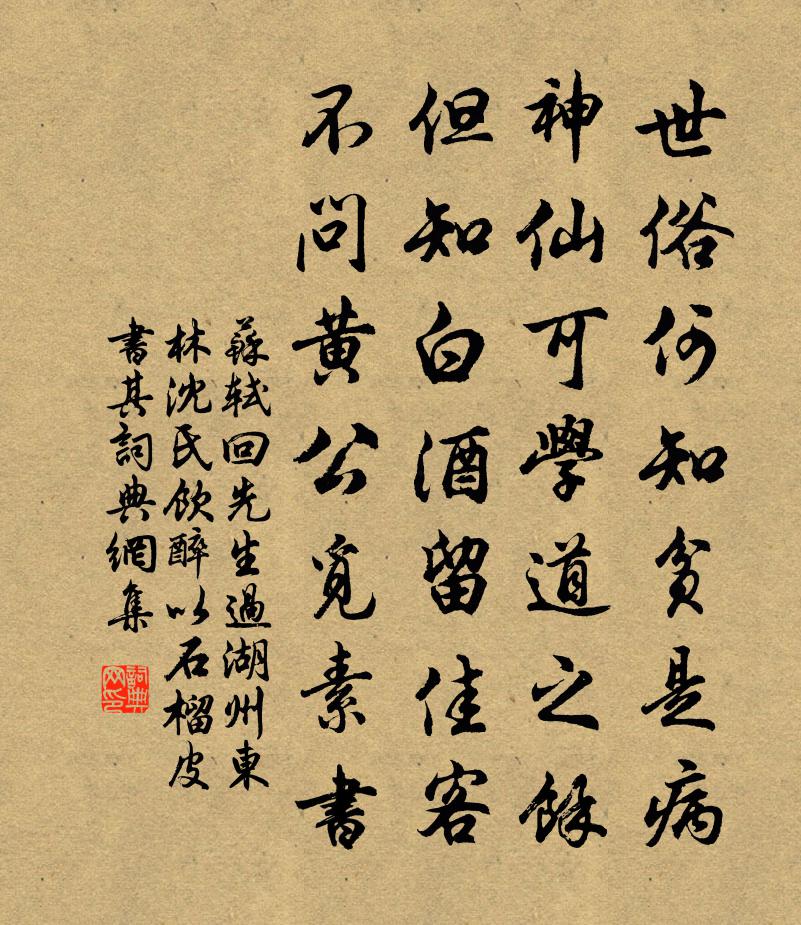 世俗何知貧是病
神仙可學道之餘
但知白酒留佳客
不問黃公覓素書
蘇軾回先生過湖州東
林沈氏飲醉以石榴皮
書其詞典網集
詞典
网印